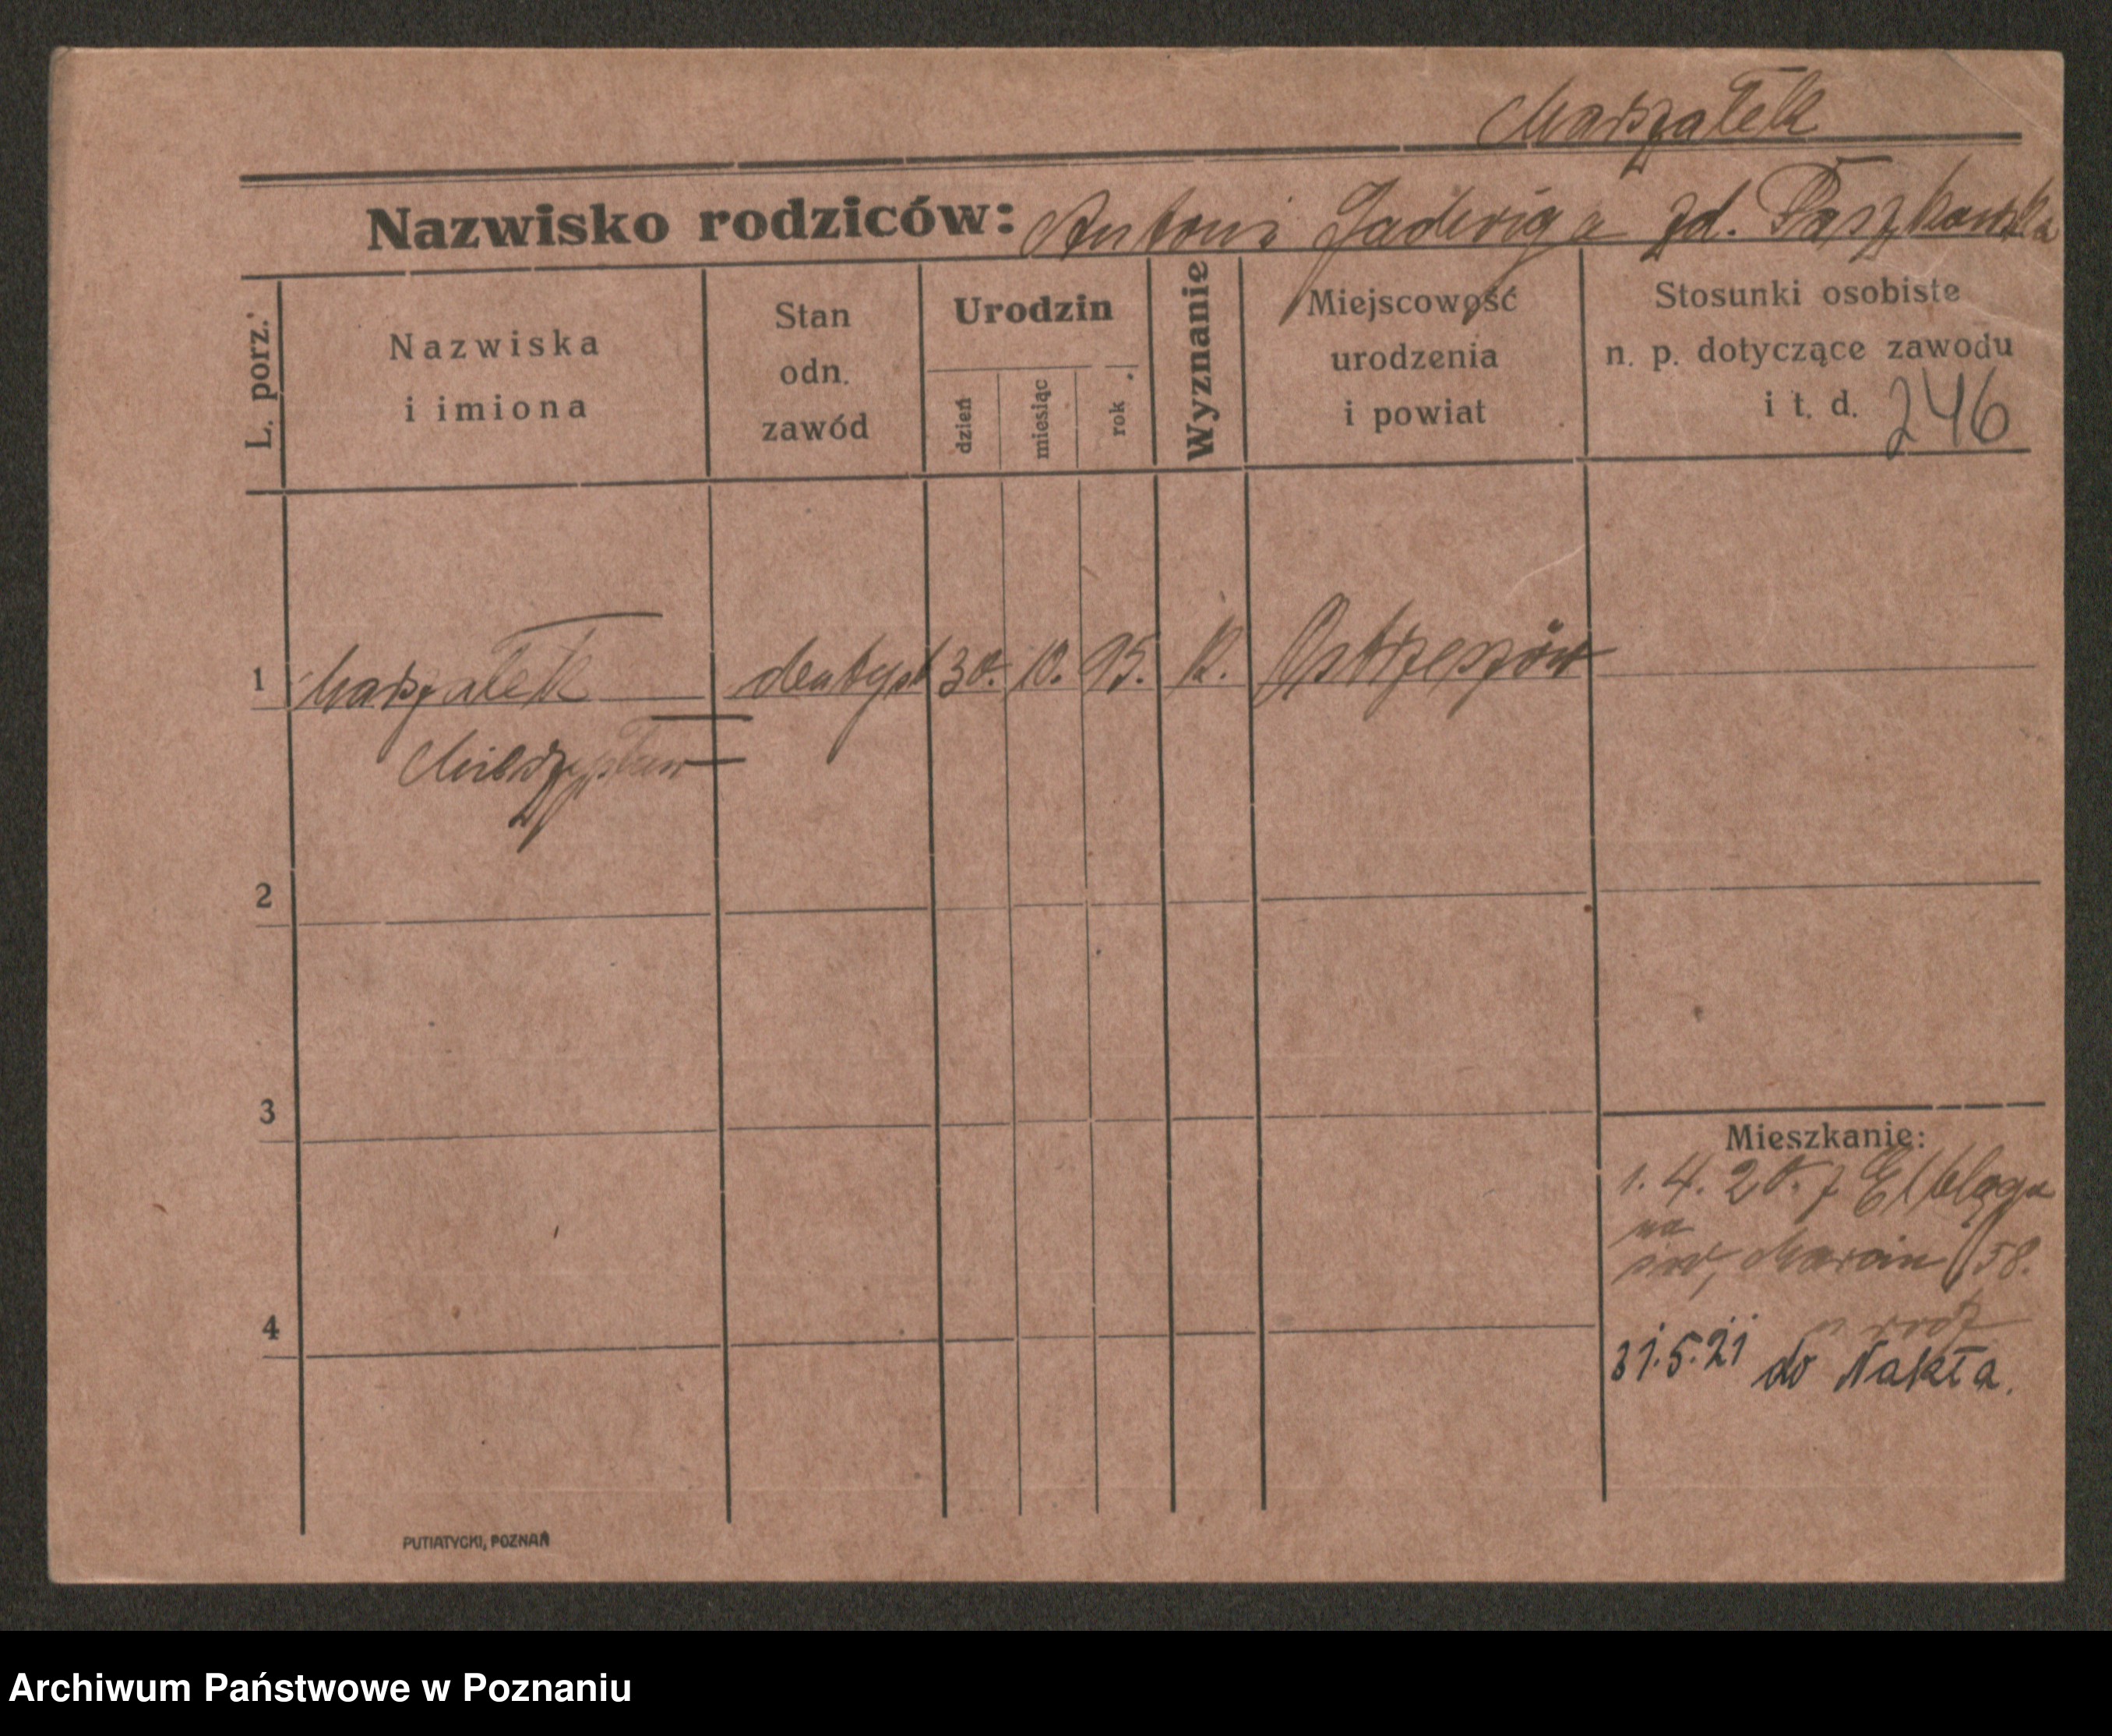 Marszałek
Nazwisko rodziców: Antoni Jadwiga zd. Paszkowska
L. porz.
Nazwiska
i imiona
Stan
odn.
zawód
Urodzin
dzień
miesiąc
rok
Wyznanie
Miejscowość
urodzenia
i powiat
Stosunki osobiste
n. p. dotyczące zawodu
i t. d. 246
1 Marszałek dentyst 30. 10. 95. K. Ostrzeszów
Mieczysław
2
3
Mieszkanie:
1. 4. 20. z Elbląga
na
św, Marcin 58.
4
31.5.21 do Nakła.
PUTIATYCKI, POZNAŃ
Archiwum Państwowe w Poznaniu